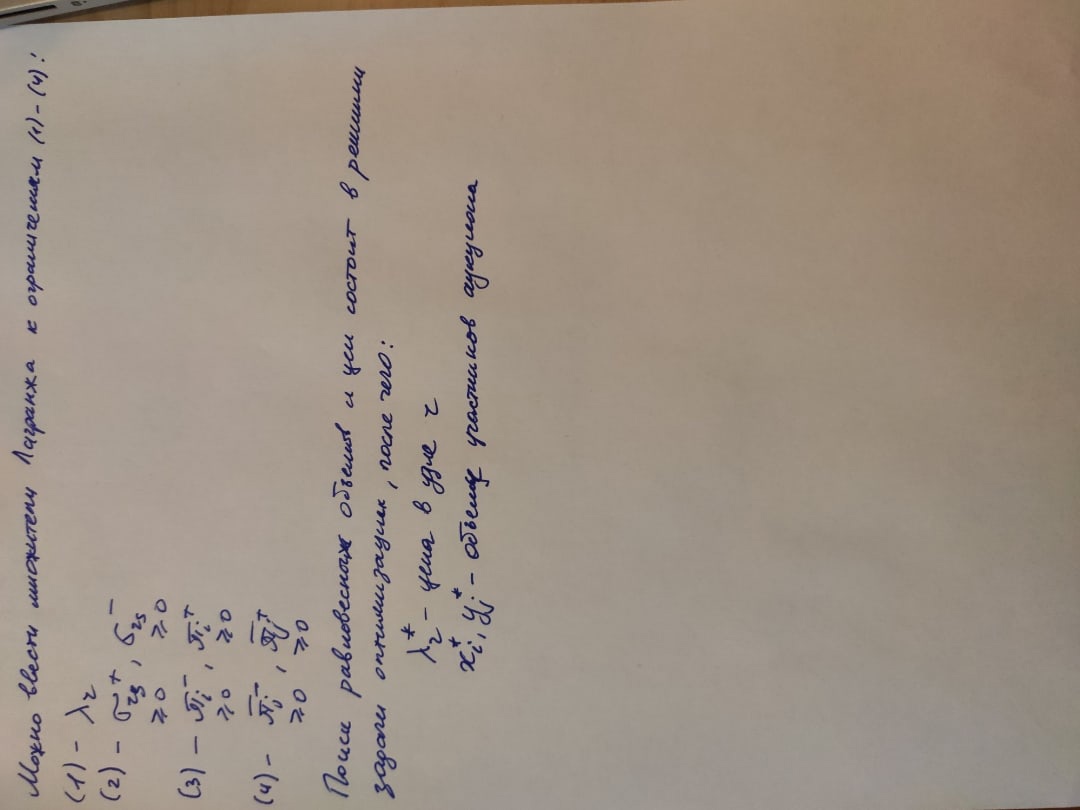 Можно ввести множители Лагранжа к ограничениям (1)-(4):
(1) - λr
(2) - σrs⁺, σrs⁻
≥0 ≥0
(3) - πi⁻, πi⁺
≥0 ≥0
(4) - π̅j⁻, π̅j⁺
≥0 ≥0
Поиск равновесных объемов и цен состоит в решении
задачи оптимизации, после чего:
λr* - цена в узле r
xi*, yj* - объемы участников аукциона